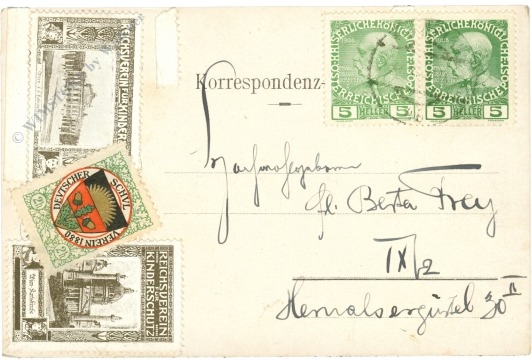 REICHSVEREIN
FÜR KINDER
DEUTSCHER SCHUL
VEREIN 1880
REICHSVEREIN
FÜR
KINDERSCHUTZ
Wien Karlskirche
Korrespondenz-
KAISERLICHEKÖNIGL
ÖSTERREICHISCHE
5 HELLER 5
KAISERLICHEKÖNIGL
ÖSTERREICHISCHE
5 HELLER 5
Hochwohlgeboren
Frl. Berta Frey
IX/2
Hernalsergürtel 30 II